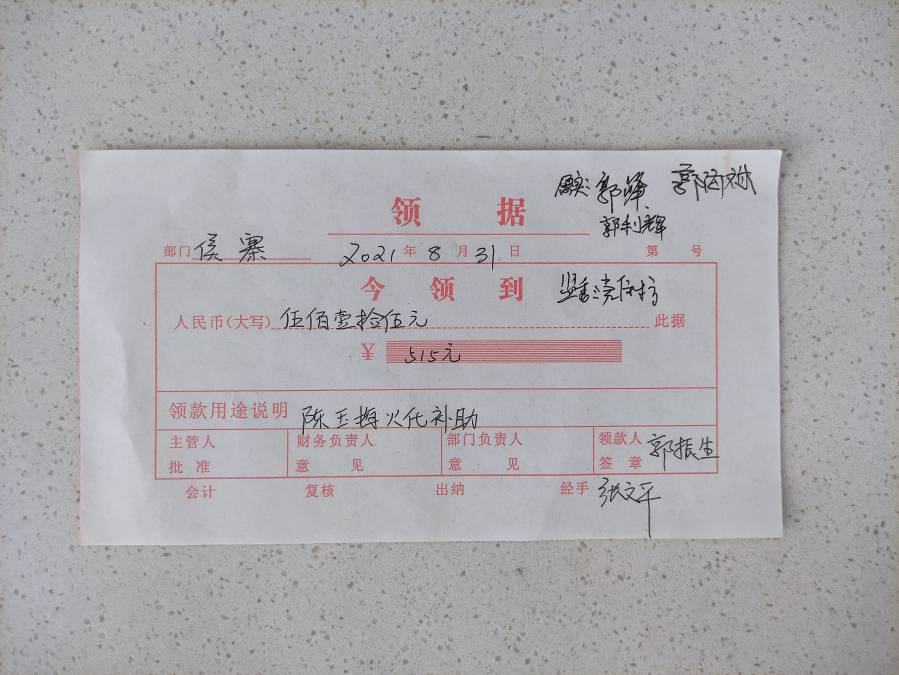 属实: 郭峰
领 据
郭利辉
部门 侯寨 2021 年 8 月 31 日 第 号
今 领 到
人民币(大写) 伍佰壹拾伍元 此据
¥ 515元
领款用途说明 陈玉梅火化补助
主管人 财务负责人 部门负责人 领款人 郭振生
批 准 意 见 意 见 签 章
会计 复核 出纳 经手 张文平